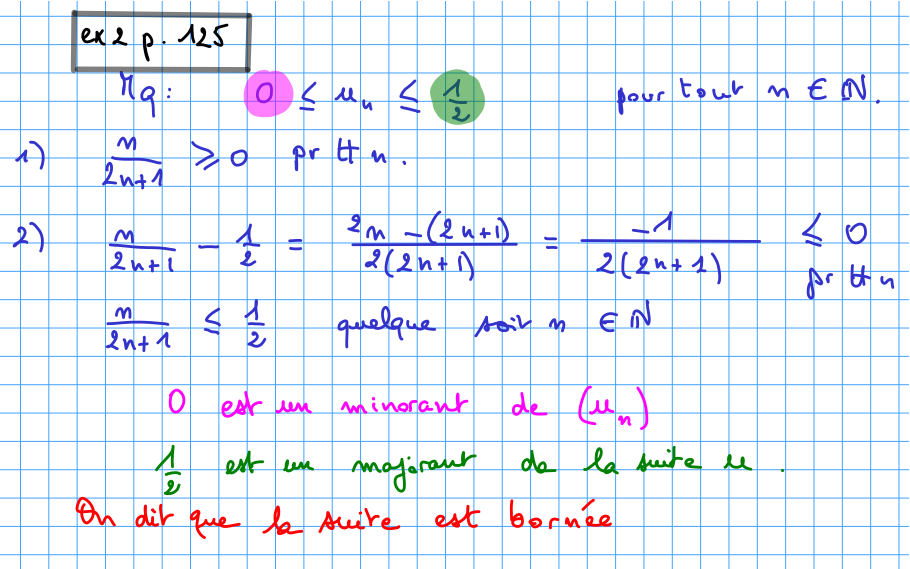 ex 2 p. 125
Mq : 0 ≤ uₙ ≤ 1/2 pour tout n ∈ ℕ.
1) n/(2n+1) ≥ 0 pr tt n.
2) n/(2n+1) - 1/2 = (2n - (2n+1))/(2(2n+1)) = -1/(2(2n+1)) ≤ 0
pr tt n
n/(2n+1) ≤ 1/2 quelque soit n ∈ ℕ
0 est un minorant de (uₙ)
1/2 est un majorant de la suite u.
On dit que la suite est bornée